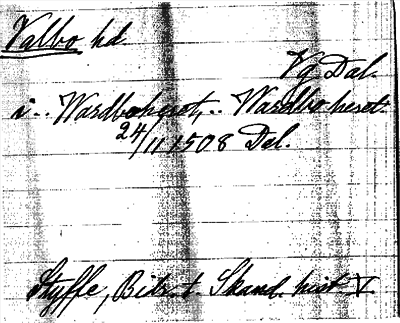 Valbo hd.
Vg Dal.
i .. Wardbohgret, .. Wardbo heret.
24/11 1508 Dal.
Styffe, Bidr. t. Skand. hist V.